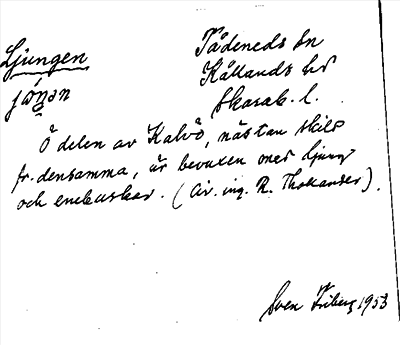 Ljungen
Tådeneds sn
Kållands hd
Skarab. l.
Ö delen av Kalvö, nästan skild
fr. densamma, är bevuxen med ljung
och enebuskar. (Civ. ing. R. Thollander).
Sven Friberg 1953